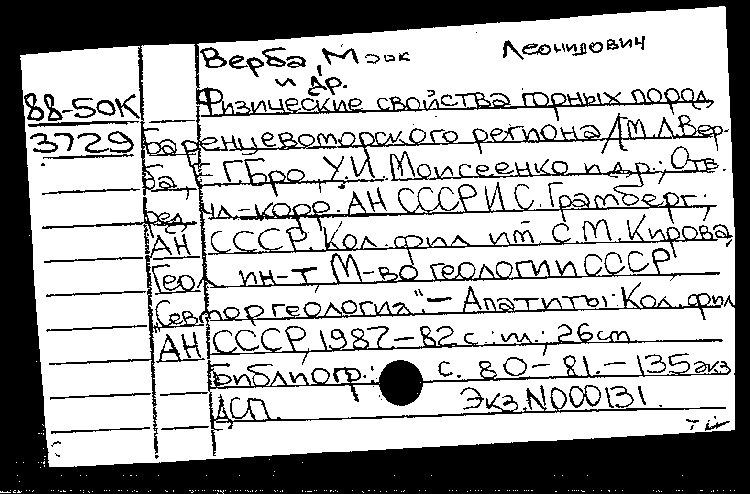 Верба, Марк Леонидович
и др.
88-50К Физические свойства горных пород
3729 Баренцевоморского региона / М.Л. Вер-
ба, Е.Г. Бро, У.И. Моисеенко и др.; Отв.
ред. чл.-корр. АН СССР И.С. Грамберг;
АН СССР. Кол. фил. им. С.М. Кирова,
Геол. ин-т, М-во геологии СССР,
"Севморгеология". – Апатиты: Кол. фил.
АН СССР, 1987 – 82 с.: ил.; 26 см
Библиогр.: с. 80-81. – 135 экз
ДСП. Экз. N000131.